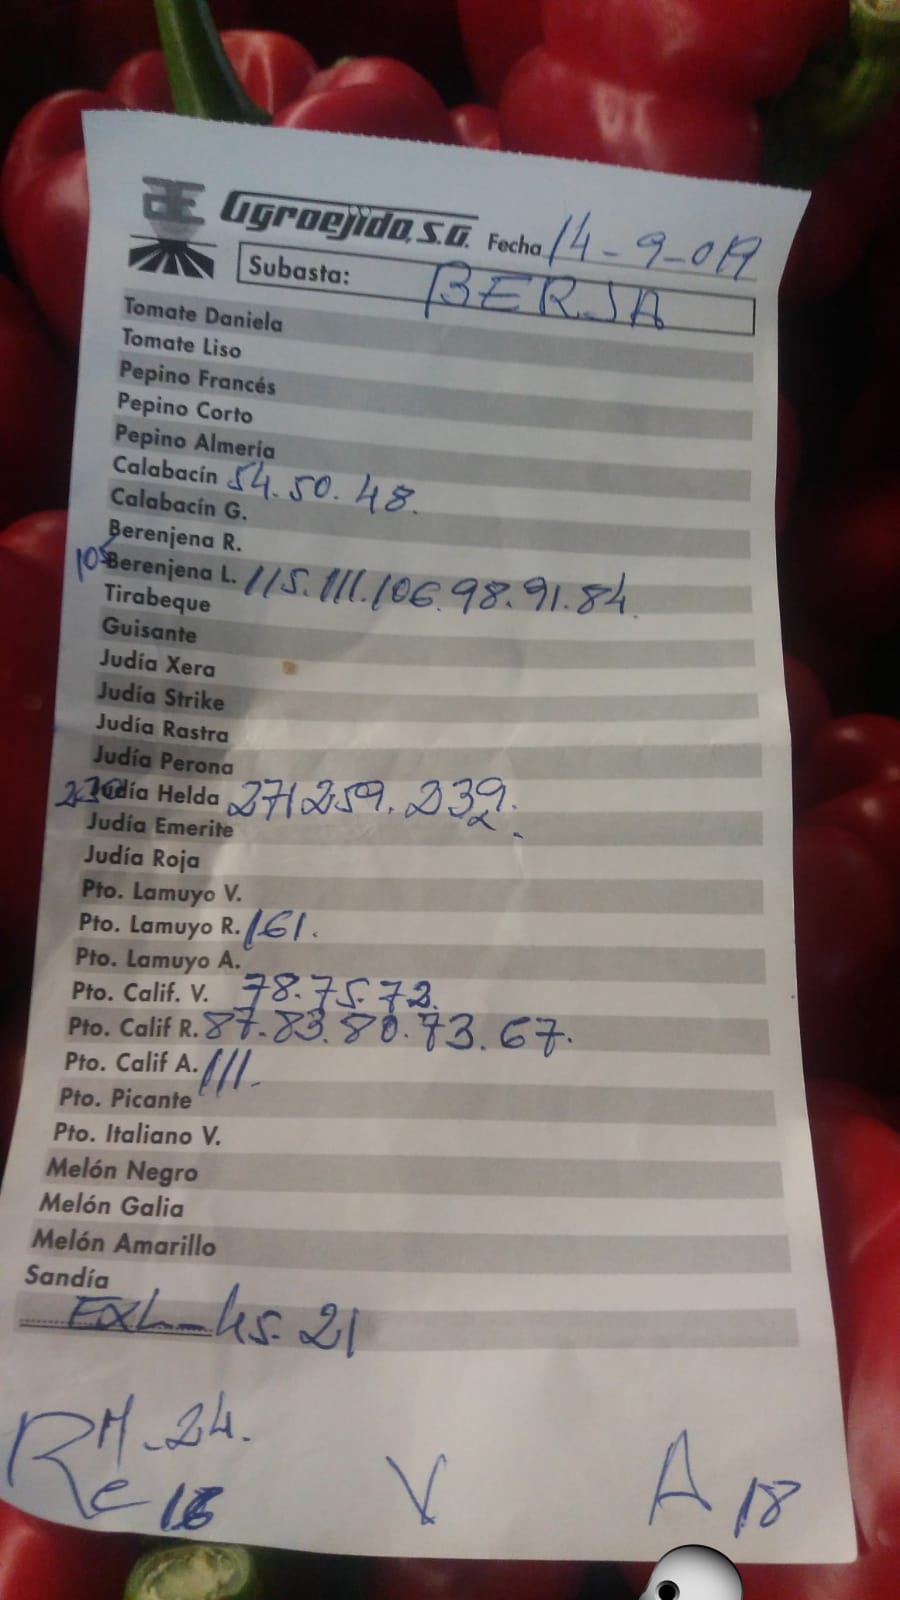 Agroejido, S.A. Fecha 14-9-019
Subasta: BERJA
Tomate Daniela
Tomate Liso
Pepino Francés
Pepino Corto
Pepino Almería
Calabacín 54.50.48.
Calabacín G.
Berenjena R.
105 Berenjena L. 115.111.106.98.91.84.
Tirabeque
Guisante
Judía Xera
Judía Strike
Judía Rastra
Judía Perona
230 Judía Helda 271 259.239.
Judía Emerite
Judía Roja
Pto. Lamuyo V.
Pto. Lamuyo R. 161.
Pto. Lamuyo A.
Pto. Calif. V. 78.75.72.
Pto. Calif R. 87.83.80.73.67.
Pto. Calif A. 111.
Pto. Picante
Pto. Italiano V.
Melón Negro
Melón Galia
Melón Amarillo
Sandía
21
R M-24.
C 16 V A 18